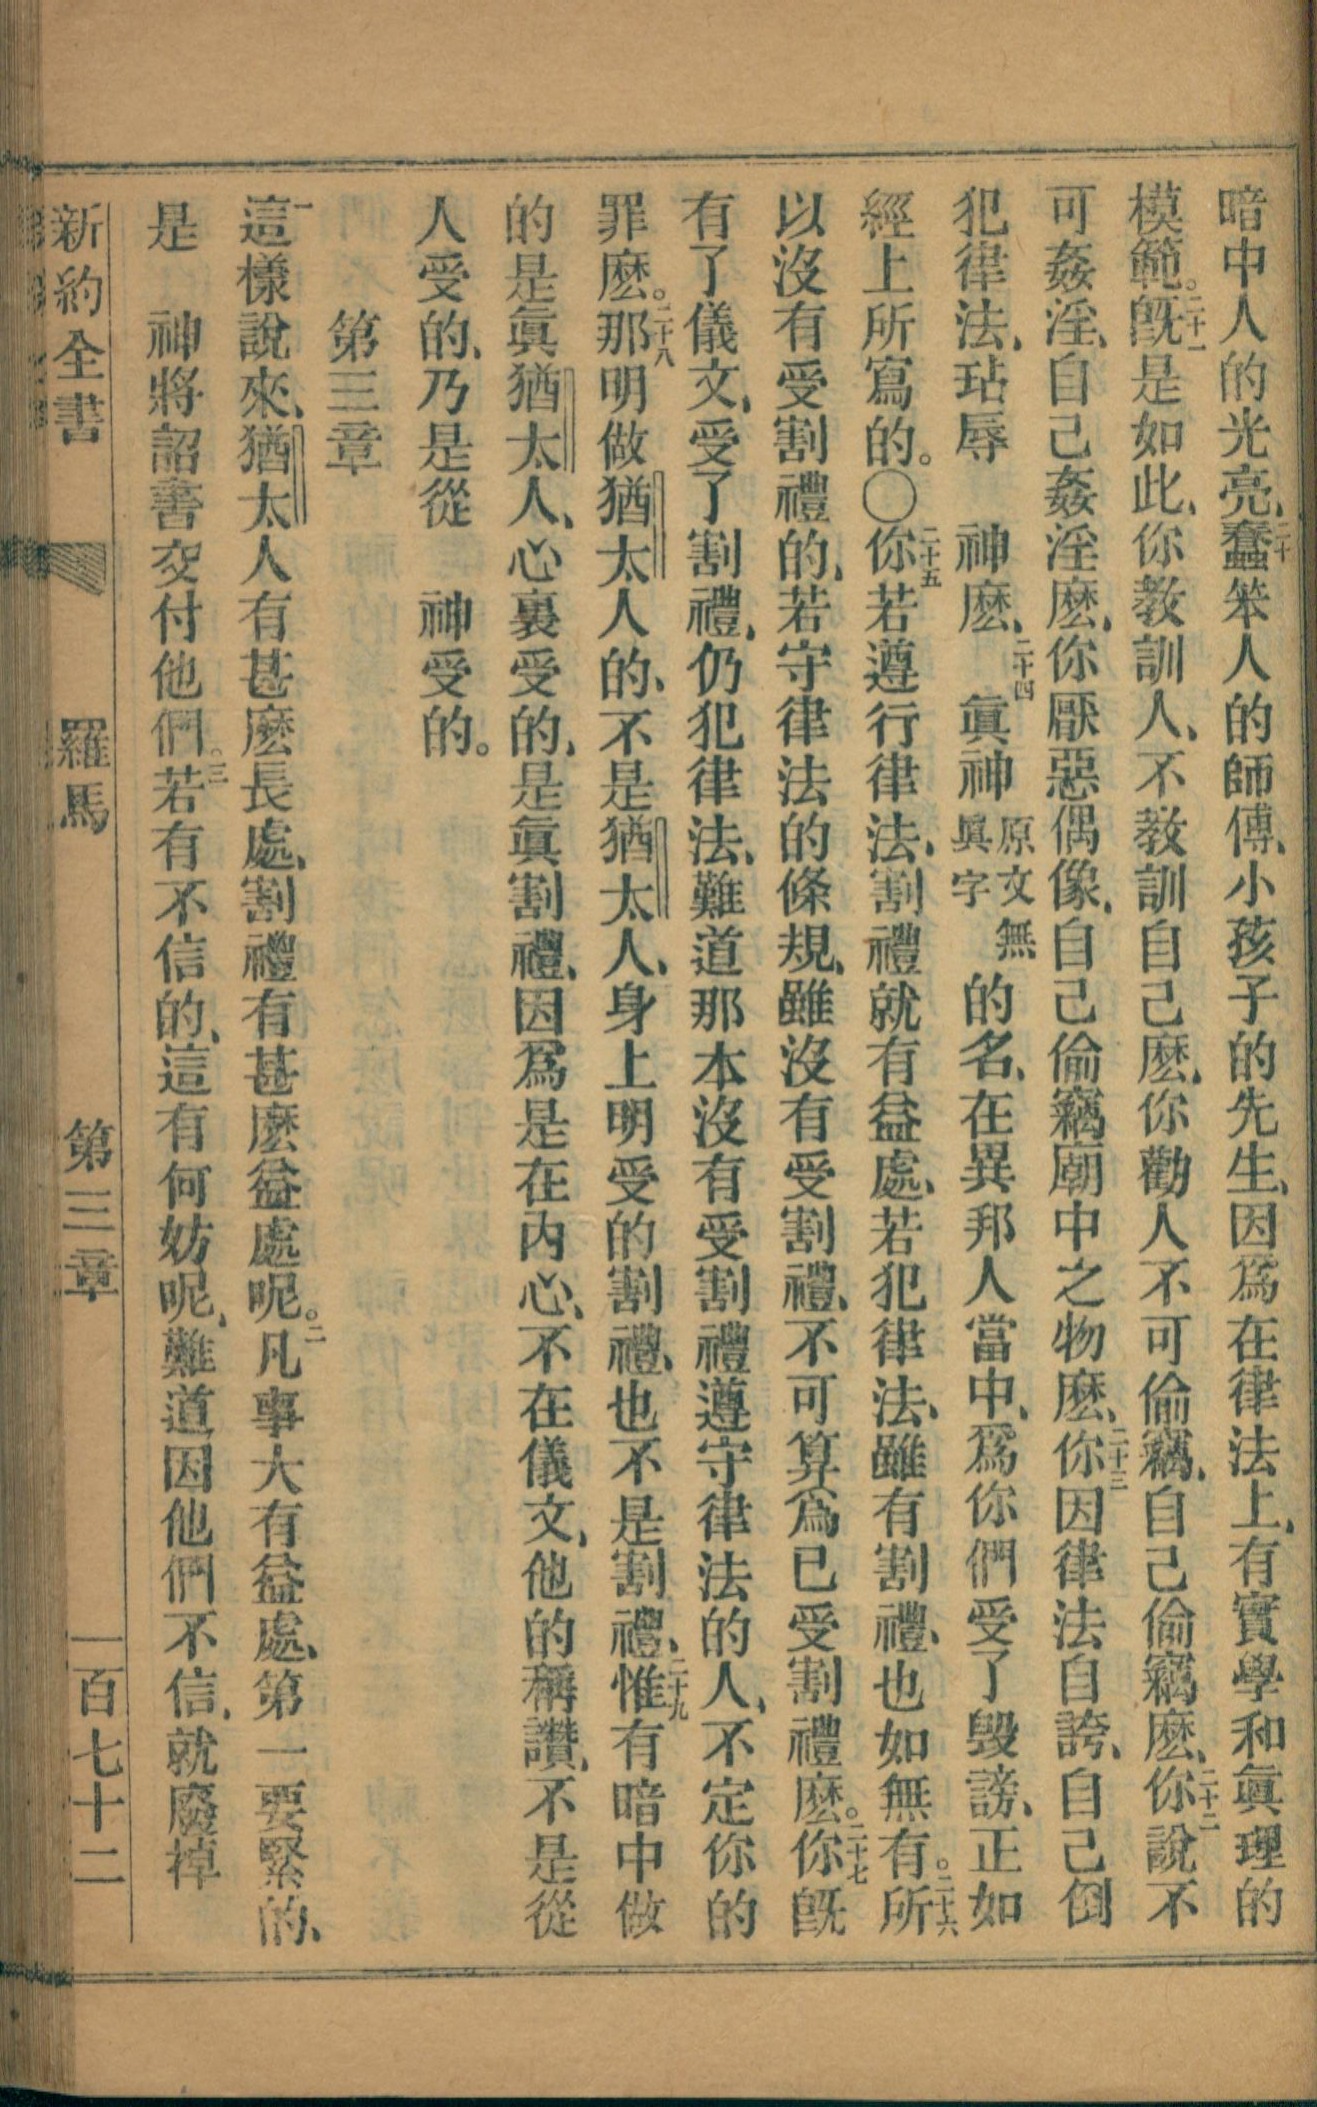 暗中人的光亮、二十蠢笨人的師傅、小孩子的先生、因爲在律法上、有實學和眞理的
模範。二十一旣是如此、你教訓人、不教訓自己麽、你勸人不可偷竊、自己偷竊麽、二十二你說不
可姦淫、自己姦淫麽、你厭惡偶像、自己偷竊廟中之物麽、二十三你因律法自誇、自己倒
犯律法、玷辱　神麽、二十四眞神原文無眞字的名、在異邦人當中、爲你們受了毀謗、正如
經上所寫的。〇二十五你若遵行律法、割禮就有益處、若犯律法、雖有割禮、也如無有。二十六所
以沒有受割禮的、若守律法的條規、雖沒有受割禮、不可算爲已受割禮麽。二十七你旣
有了儀文、受了割禮、仍犯律法、難道那本沒有受割禮遵守律法的人、不定你的
罪麽。二十八那明做猶太人的、不是猶太人、身上明受的割禮、也不是割禮、二十九惟有暗中做
的是眞猶太人、心裏受的、是眞割禮、因爲是在內心、不在儀文、他的稱讚、不是從
人受的、乃是從　神受的。
第三章
一這樣說來、猶太人有甚麽長處、割禮有甚麽益處呢。二凡事大有益處、第一要緊的、
是　神將詔書交付他們。三若有不信的、這有何妨呢、難道因他們不信、就廢掉
新約全書　羅馬　第三章　一百七十二